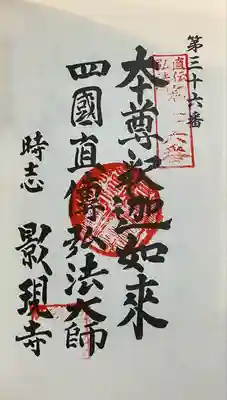 第三十六番
本尊釈迦如来
四國直傳弘法大師
時志
影現寺
直伝
弘法